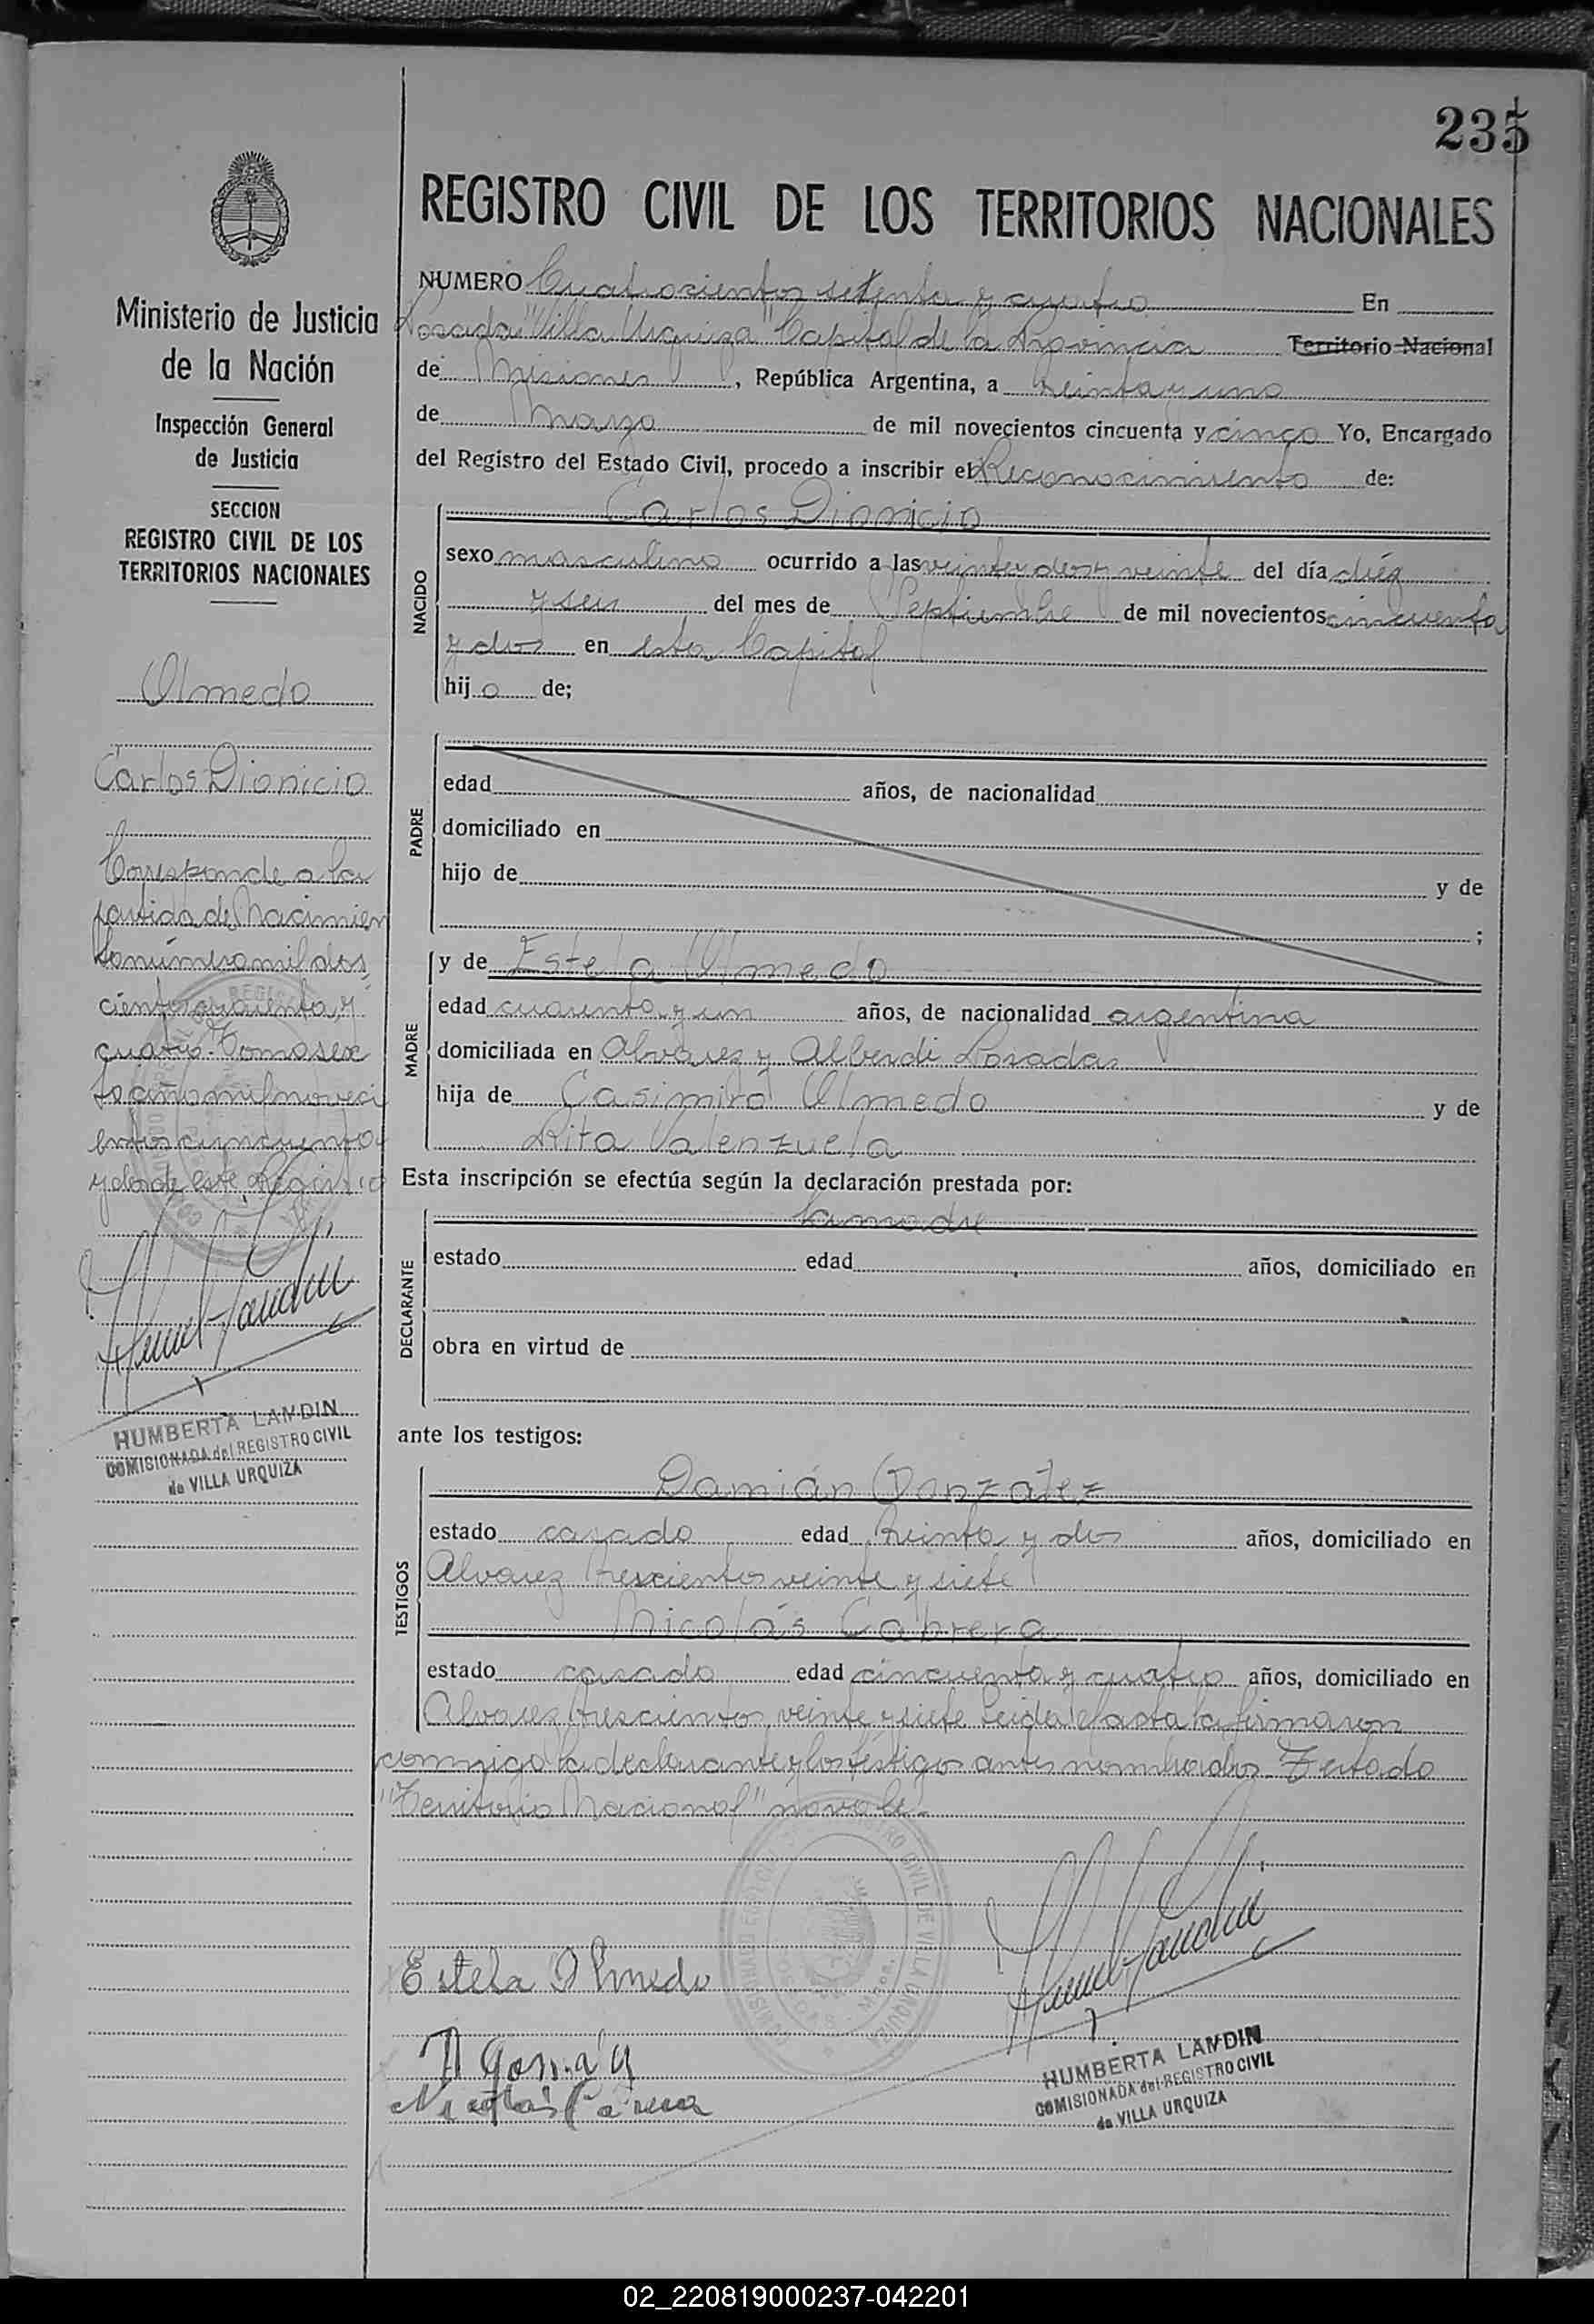 235
REGISTRO CIVIL DE LOS TERRITORIOS NACIONALES
Ministerio de Justicia
de la Nación
Inspección General
de Justicia
SECCION
REGISTRO CIVIL DE LOS
TERRITORIOS NACIONALES
Olmedo
Carlos Dionicio
Corresponde a la
partida de Nacimien
to número mil dos
cientos cincuenta y
cuatro. Tomo sex
to año mil noveci
entos cincuenta
y dos de este Registro
HUMBERTA LANDIN
COMISIONADA del REGISTRO CIVIL
de VILLA URQUIZA
NUMERO Cuatrocientos setenta y cuatro En
Posadas "Villa Urquiza" Capital de la Provincia Territorio Nacional
de Misiones, República Argentina, a treinta y uno
de marzo de mil novecientos cincuenta y cinco Yo, Encargado
del Registro del Estado Civil, procedo a inscribir el Reconocimiento de:
NACIDO
Carlos Dionicio
sexo masculino ocurrido a las veinte y dos y veinte del día diéz
y seis del mes de Septiembre de mil novecientos cincuenta
y dos en esta Capital
hijo de;
PADRE
edad años, de nacionalidad
domiciliado en
hijo de y de
;
MADRE
y de Estela Olmedo
edad cuarenta y un años, de nacionalidad argentina
domiciliada en Alvarez y Alberdi Posadas
hija de Casimiro Olmedo y de
Rita Valenzuela
Esta inscripción se efectúa según la declaración prestada por:
DECLARANTE
la madre
estado edad años, domiciliado en
obra en virtud de
ante los testigos:
TESTIGOS
Damián Gonzalez
estado casado edad treinta y dos años, domiciliado en
Alvarez trescientos veinte y siete
Nicolás Cabrera
estado casado edad cincuenta y cuatro años, domiciliado en
Alvarez trescientos veinte y siete Leida el acta la firmaron
conmigo la declarante y los testigos antes nombrados. Testado
"Territorio Nacional" no vale.
Estela Olmedo
HUMBERTA LANDIN
COMISIONADA del REGISTRO CIVIL
de VILLA URQUIZA
02_220819000237-042201